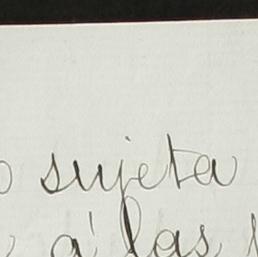 sujeta
á las